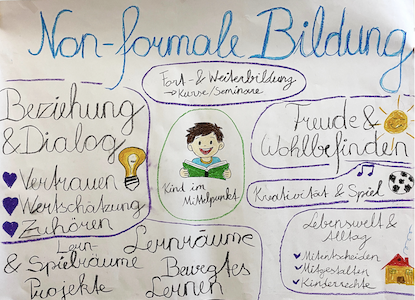 Non-formale Bildung
Fort- & Weiterbildung
→ Kurse/Seminare
Beziehung
& Dialog
Vertrauen
Wertschätzung
Zuhören
Kind im
Mittelpunkt
Freude &
Wohlbefinden
Kreativität & Spiel
Lebenswelt &
Alltag
Mitentscheiden
Mitgestalten
Kinderrechte
Lern-
& Spielräume
Projekte
Lernräume
Bewegtes
Lernen